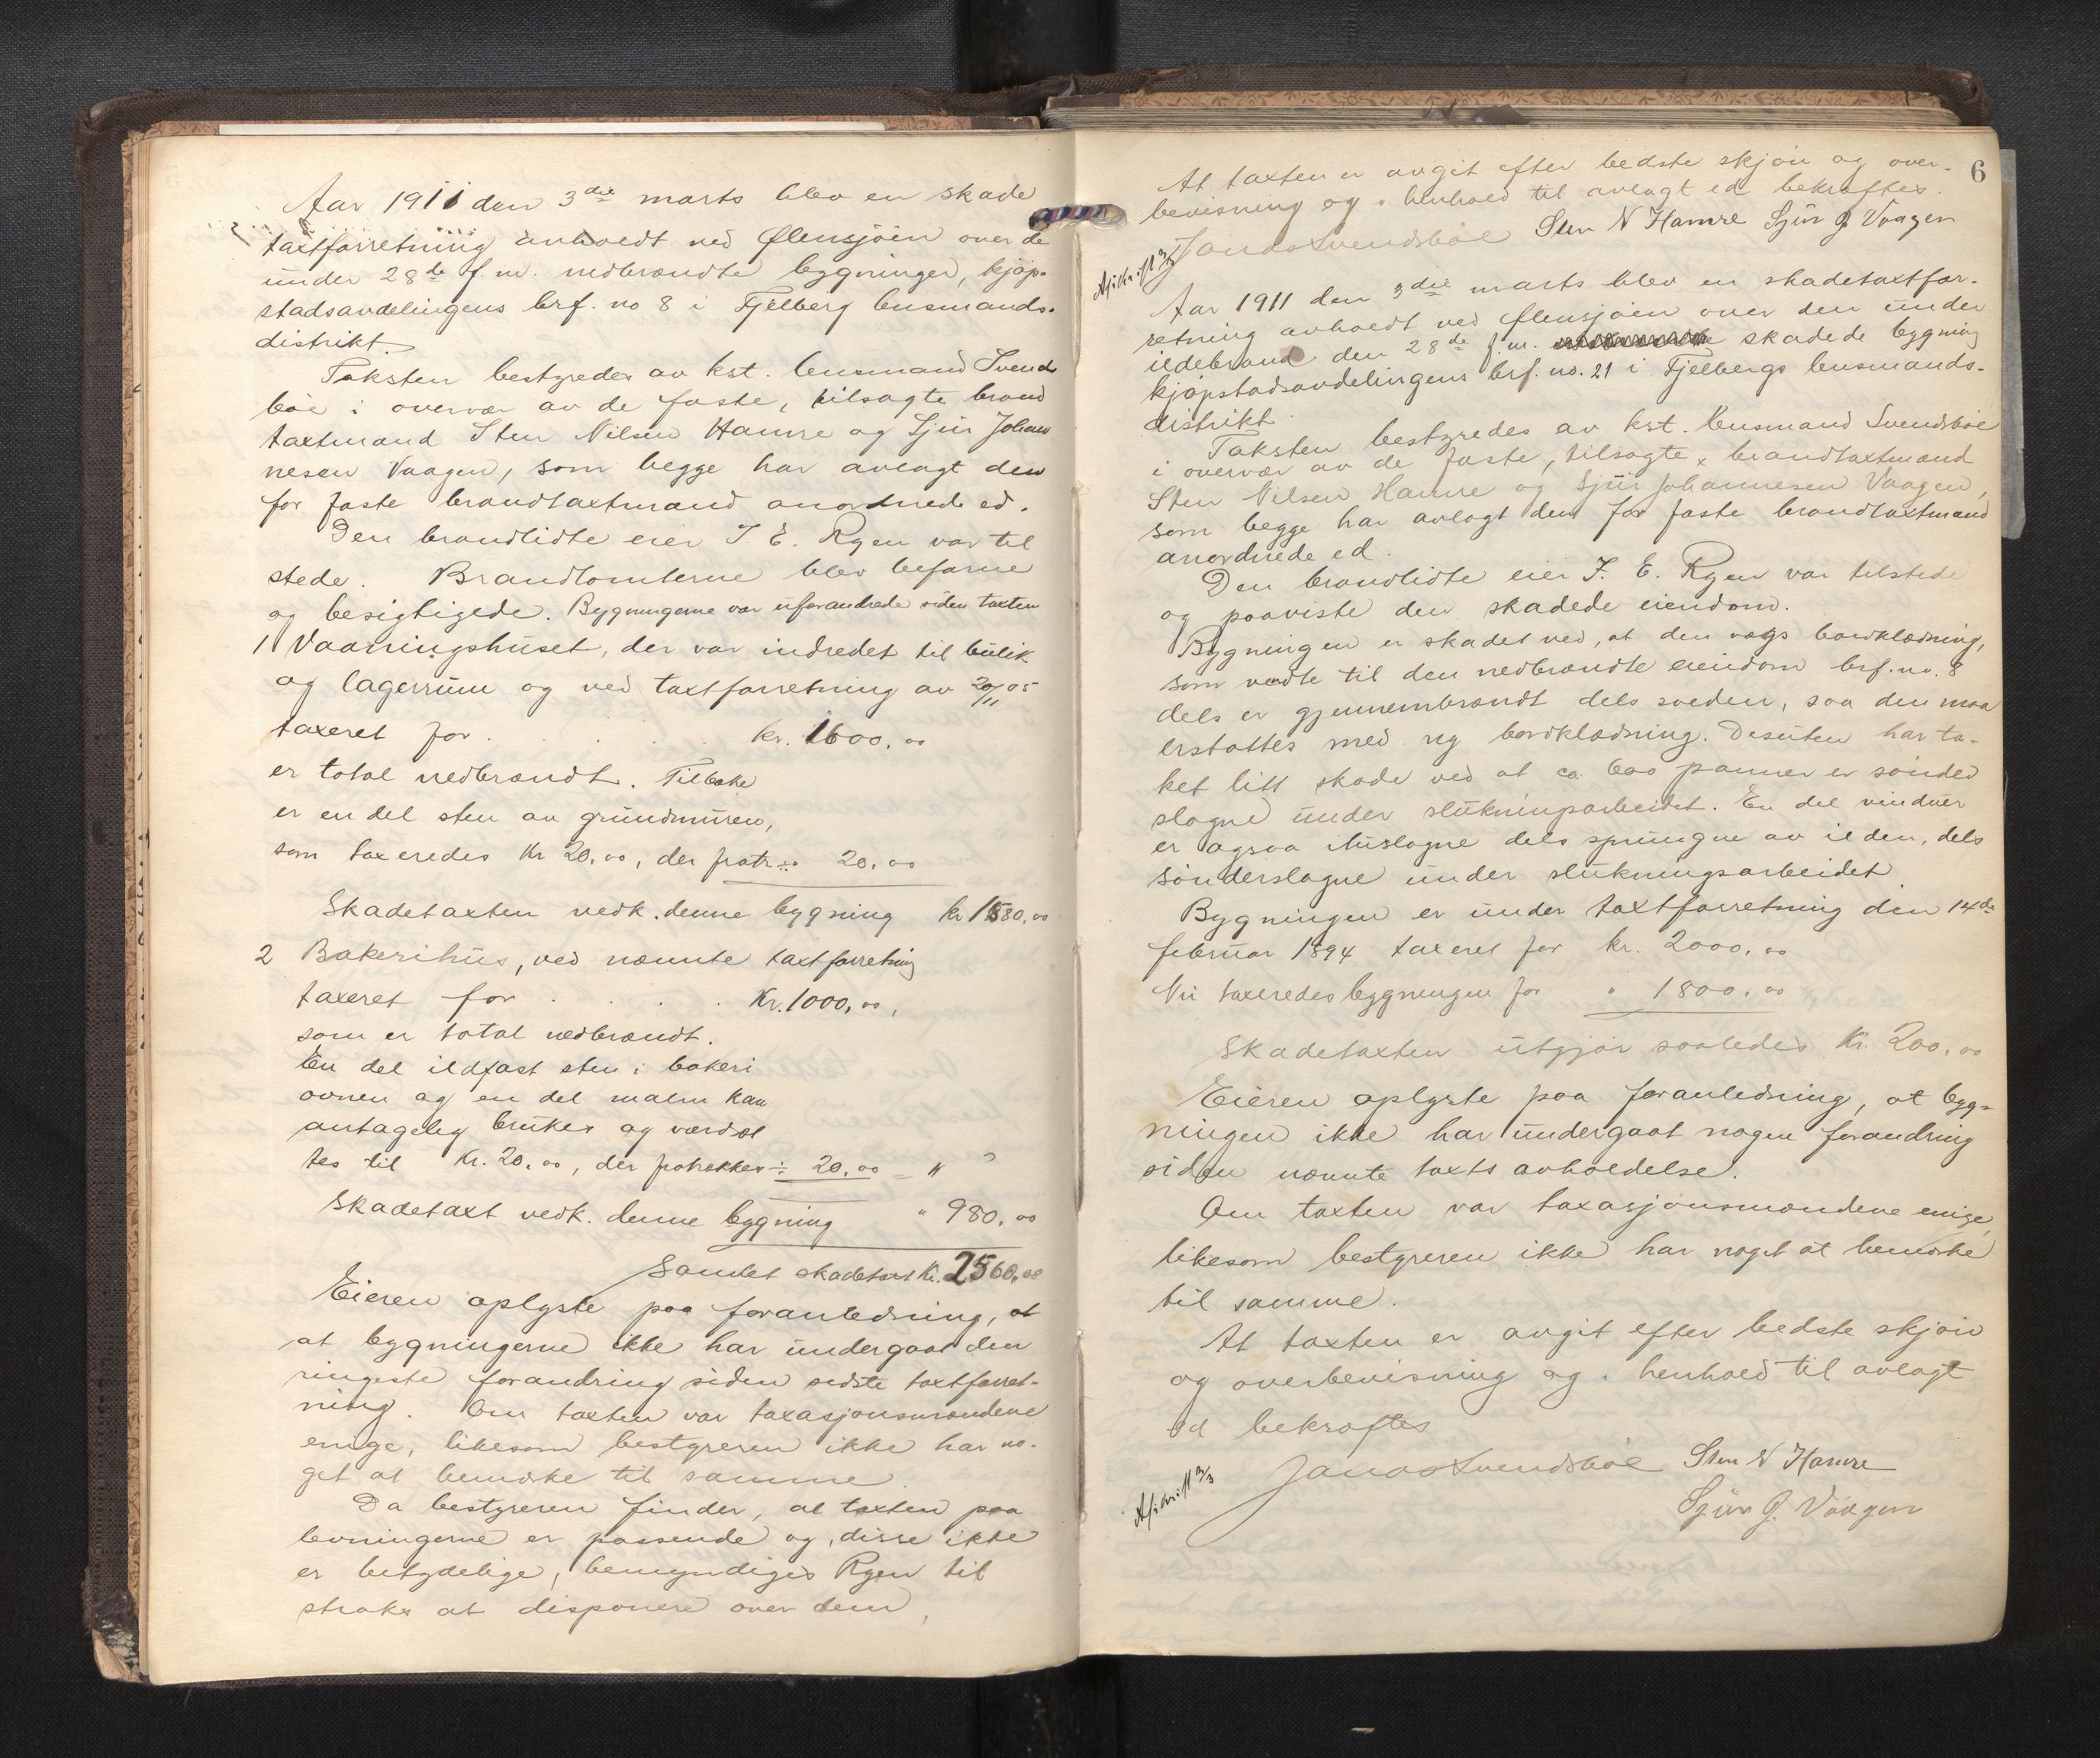 Aar 1911 den 3die marts blev en skade
taxtforretning avholdt ved Ølensjøen over de
under 28de f.m. nedbrændte bygninger, kjøp-
stadsavdelingens brf. no 8 i Fjelberg lensmands-
distrikt.
Taksten bestyredes av kst. lensmand Svends
bøe i overvær av de faste, tilsagte brand
taxtmænd Sten Nilsen Hamre og Sjur Johan
nesen Vaagen, som begge har avlagt den
for faste brandtaxtmænd anordnede ed.
Den brandlidte eier J. E. Rygen var til
stede. Brandtomterne blev befarne
og besigtigede. Bygningerne var uforandrede siden taxten
1 Vaaningshuset, der var indredet til butik
og lagerrum og ved taxtforretning av 20/11 05
taxeret for . . . . kr. 1600,00
er total nedbrændt. Tilbake
er en del sten av grundmuren,
som taxeredes Kr 20,00, der fratr. ÷ 20,00
Skadetaxten vedk. denne bygning kr 1580,00
2 Bakerihus, ved nævnte taxtforretning
taxeret for . . . . Kr. 1000,00,
som er total nedbrændt.
En del ildfast sten i bakeri
ovnen og en del malm kan
antagelig brukes og værdsæt
tes til Kr. 20,00, der fratrækkes ÷ 20,00 = " "
Skadetaxt vedk. denne bygning " 980,00
Samlet skadetaxt Kr. 2560,00
Eieren oplyste paa foranledning, at
at bygningerne ikke har undergaat den
ringeste forandring siden sidste taxtforret-
ning. Om taxten var taxasjonsmændene
enige, likesom bestyreren ikke har no-
get at bemerke til samme
Da bestyreren finder, at taxten paa
levningerne er passende og, disse ikke
er betydelige, bemyndiges Rygen til
straks at disponere over dem,
6
At taxten er avgit efter bedste skjøn og over-
bevisning og i henhold til avlagt ed bekræftes.
Svendsbøe Sten N Hamre Sjur J. Vaagen
Afskrift 3/3
Aar 1911 den 3die marts blev en skadetaxtfor-
retning avholdt ved Ølensjøen over den under
ildebrand den 28de f.m. skadede bygning
kjøpstadsavdelingens brf. no. 21 i Fjelbergs lensmands-
distrikt.
Taksten bestyredes av kst. lensmand Svendsbøe
i overvær av de faste, tilsagte brandtaxtmænd
Sten Nilsen Hamre og Sjur Johannesen Vaagen,
som begge har avlagt den for faste brandtaxtmænd
anordnede ed.
Den brandlidte eier J. E. Rygen var tilstede
og paaviste den skadede eiendom.
Bygningen er skadet ved, at den vægs bordklædning,
som vendte til den nedbrændte eiendom brf. no. 8
dels er gjennembrændt dels sveden, saa den maa
erstattes med ny bordklædning. Desuten har ta-
ket litt skade ved at ca. 600 panner er sønder
slagne under slukningarbeidet. En del vinduer
er ogsaa ituslagne dels sprungne av ilden, dels
sønderslagne under slukningsarbeidet
Bygningen er under taxtforretning den 14de
februar 1894 taxeret for kr. 2000,00
Nu taxeredes bygningen for " 1800,00
Skadetaxten utgjør saaledes Kr. 200,00
Eieren oplyste paa foranledning, at byg-
ningen ikke har undergaat nogen forandring
siden nævnte taxts avholdelse.
Om taxten var taxasjonsmændene enige,
likesom bestyreren ikke har noget at bemerke
til samme.
At taxten er avgit efter bedste skjøn
og overbevisning og i henhold til avlagt
ed bekræftes
Svendsbøe Sten N Hamre
Sjur J. Vaagen
Afskrift 3/3